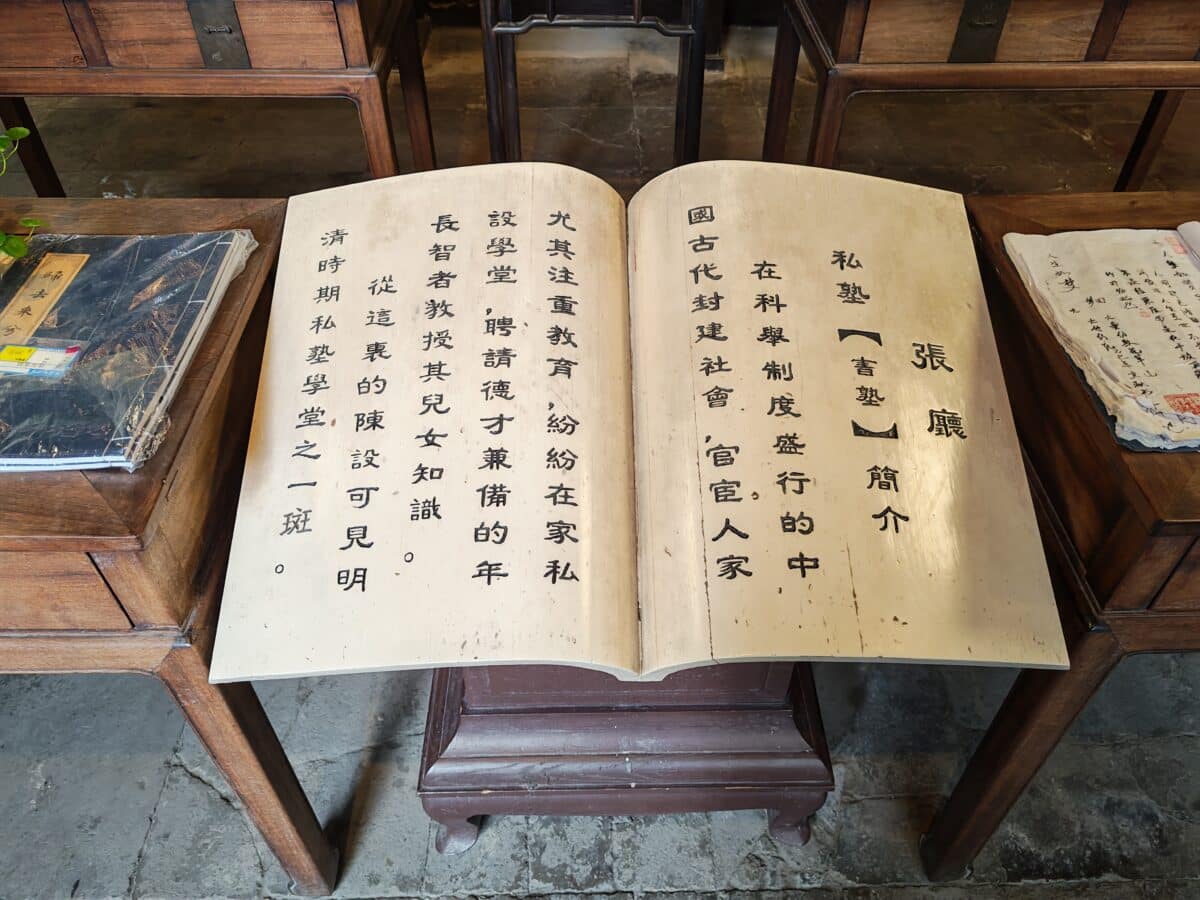 張廳
私塾【書塾】簡介
在科舉制度盛行的中
國古代封建社會,官宦人家
尤其注重教育,紛紛在家私
設學堂,聘請德才兼備的年
長智者教授其兒女知識。
從這裏的陳設可見明
清時期私塾學堂之一斑。